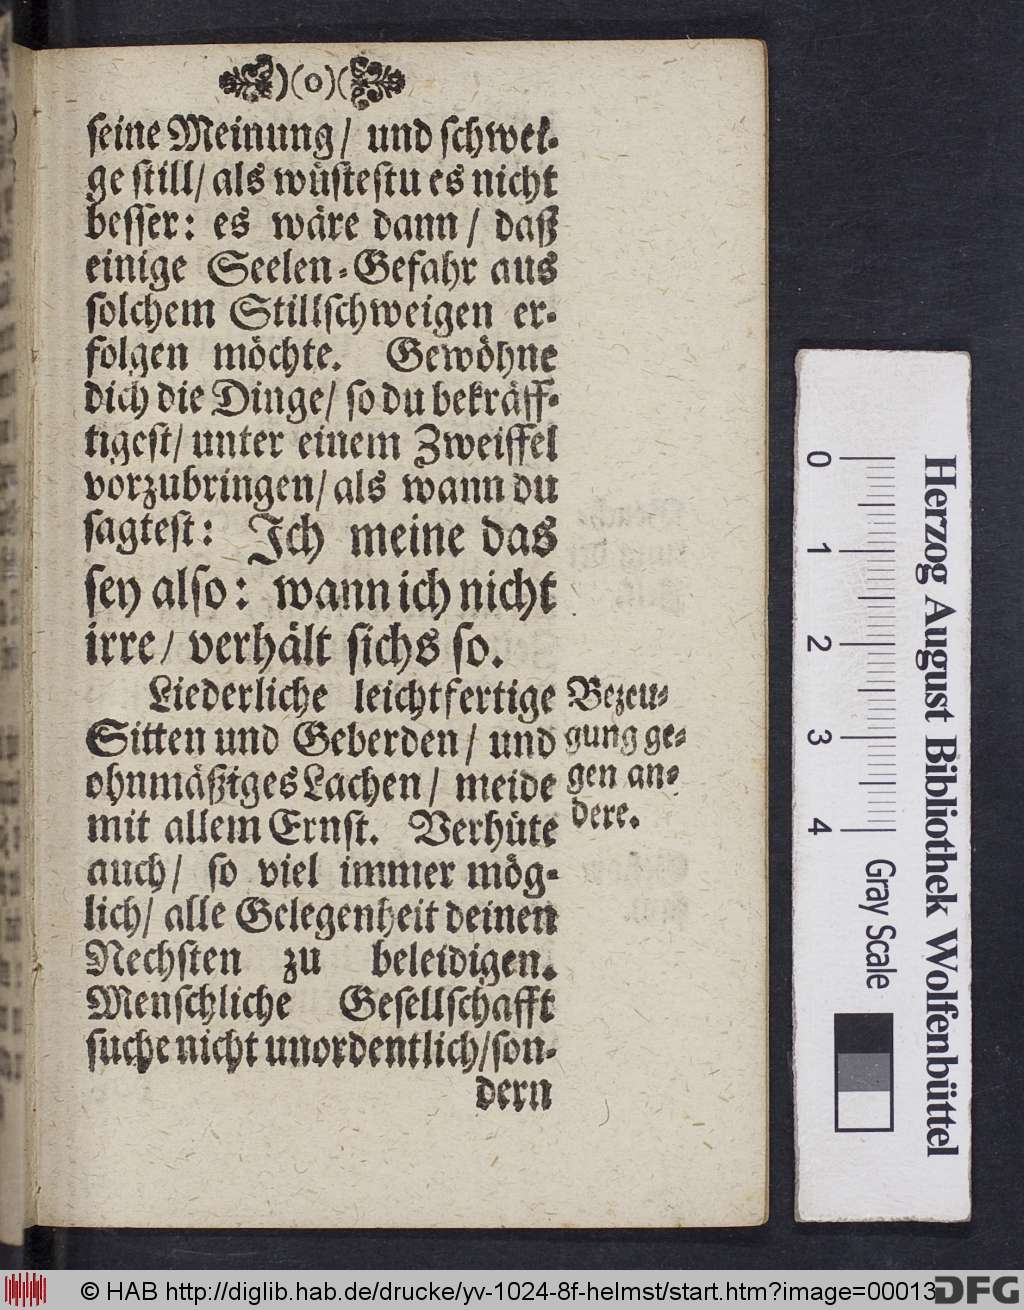 )(o)(
ſeine Meinung/ und ſchwei-
ge ſtill/ als wüſteſtu es nicht
beſſer: es wäre dann/ daß
einige Seelen-Gefahr aus
ſolchem Stillſchweigen er-
folgen möchte. Gewöhne
dich die Dinge/ ſo du bekräff-
tigeſt/ unter einem Zweiffel
vorzubringen/ als wann du
ſagteſt: Ich meine das
ſey alſo: wann ich nicht
irre/ verhält ſichs ſo.
Liederliche leichtfertige
Sitten und Geberden/ und
ohnmäßiges Lachen/ meide
mit allem Ernſt. Verhüte
auch/ ſo viel immer mög-
lich/ alle Gelegenheit deinen
Nechſten zu beleidigen.
Menſchliche Geſellſchafft
ſuche nicht unordentlich/ ſon-
dern
Bezeu-
gung ge-
gen an-
dere.
0 1 2 3 4
Gray Scale
Herzog August Bibliothek Wolfenbüttel
© HAB http://diglib.hab.de/drucke/yv-1024-8f-helmst/start.htm?image=00013
DFG